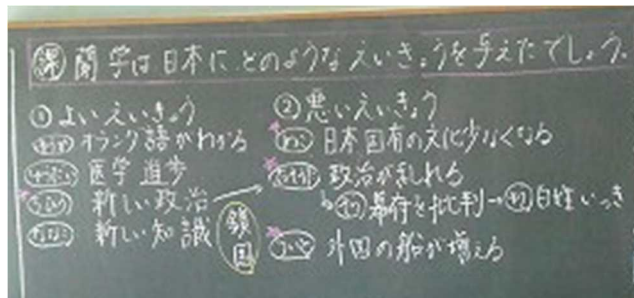 課 蘭学は日本にどのようなえいきょうを与えたでしょう。
① よいえいきょう
オランダ語がわかる
医学進歩
新しい政治
新しい知識
鎖国
② 悪いえいきょう
日本固有の文化少なくなる
政治が乱れる
↳ 幕府を批判→ 百姓いっき
外国の船が増える